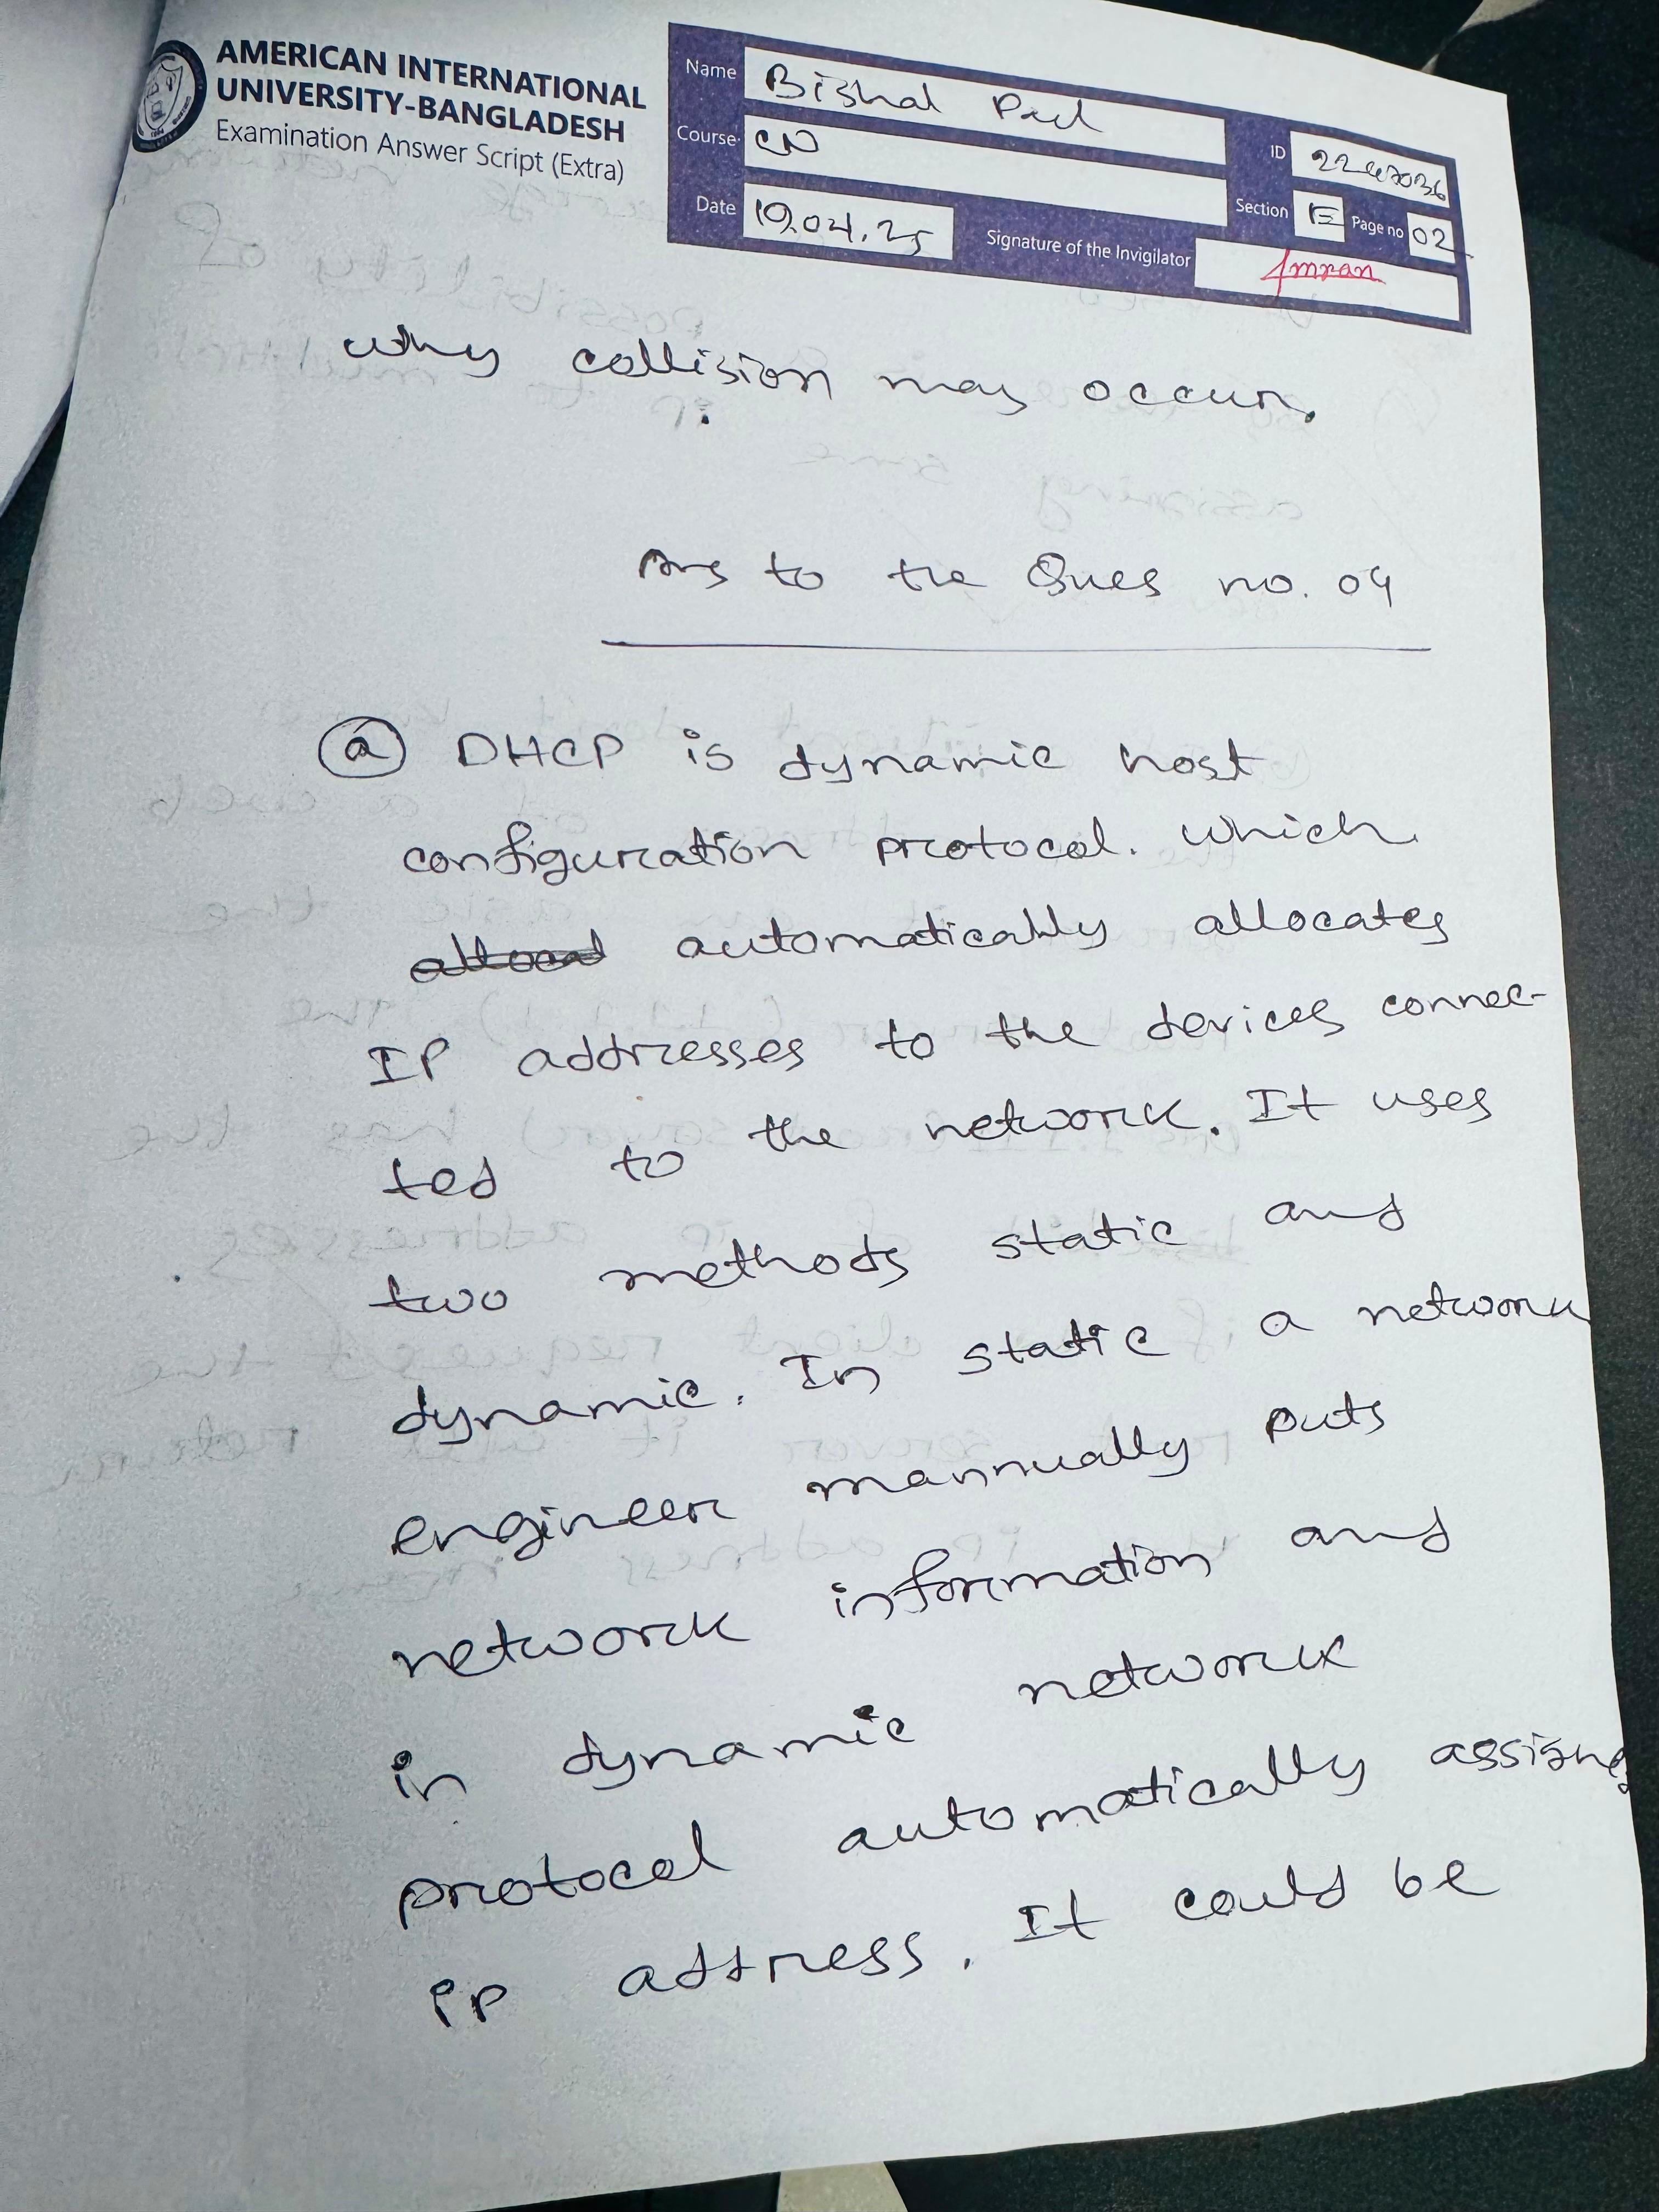 AMERICAN INTERNATIONAL
UNIVERSITY-BANGLADESH
Examination Answer Script (Extra)
Name Bishal Paul
Course CN
ID
Date 19.04.25
Section E Page no 02
Signature of the Invigilator Imran
why collision may occur.
Ans to the Ques no. 04
(a) DHCP is dynamic host
configuration protocol. which
automatically allocates
IP addresses to the devices connec-
ted to the network. It uses
two methods static and
dynamic. In static a network
engineer mannually puts
network information and
in dynamic network
protocol automatically assigns
ip address. It could be